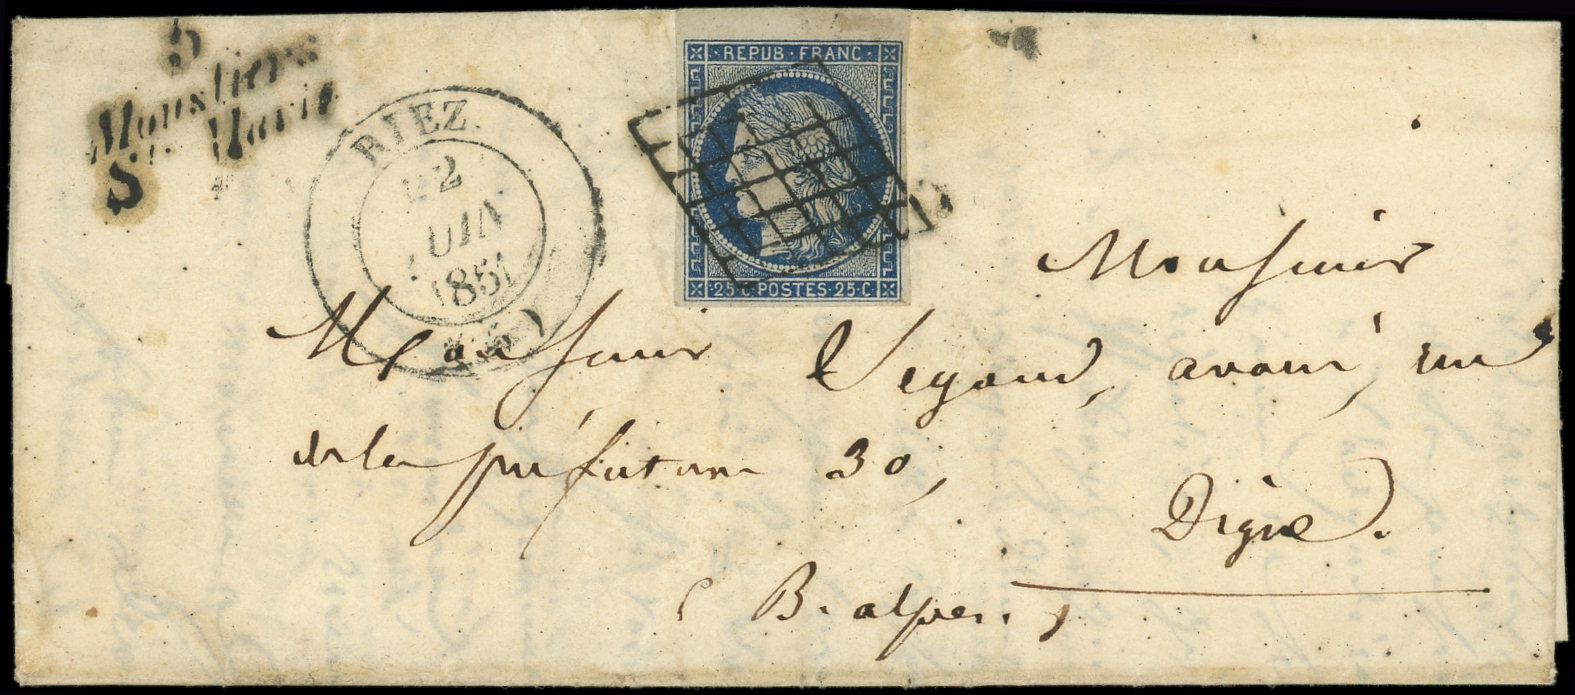 5
Moustiers
Ste. Marie
S
RIEZ
22
JUIN
1851
(5)
REPUB · FRANC ·
· 25 · C · POSTES · 25 · C ·
Monsieur
Monsieur Segond, avoué, rue
de la préfecture 30,
Digne.
( B. alpes. )